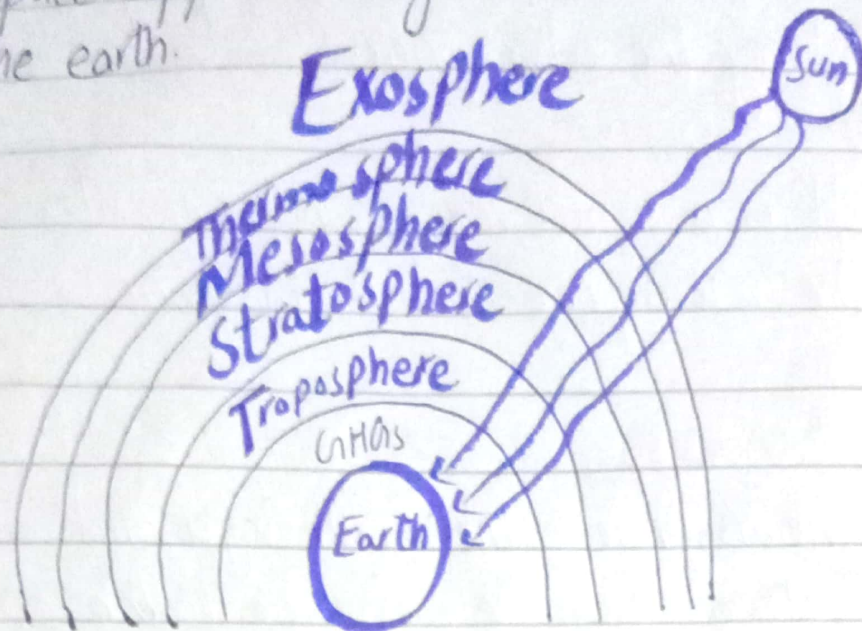 he earth.
Exosphere
Sun
Thermosphere
Mesosphere
Stratosphere
Troposphere
GHGs
Earth